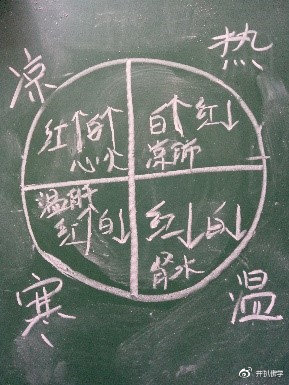 凉
热
红↑白↑
心火
白↑红↓
凉肺
温肝
红↑白↓
红↓白↓
肾水
寒
温
开扒佛学